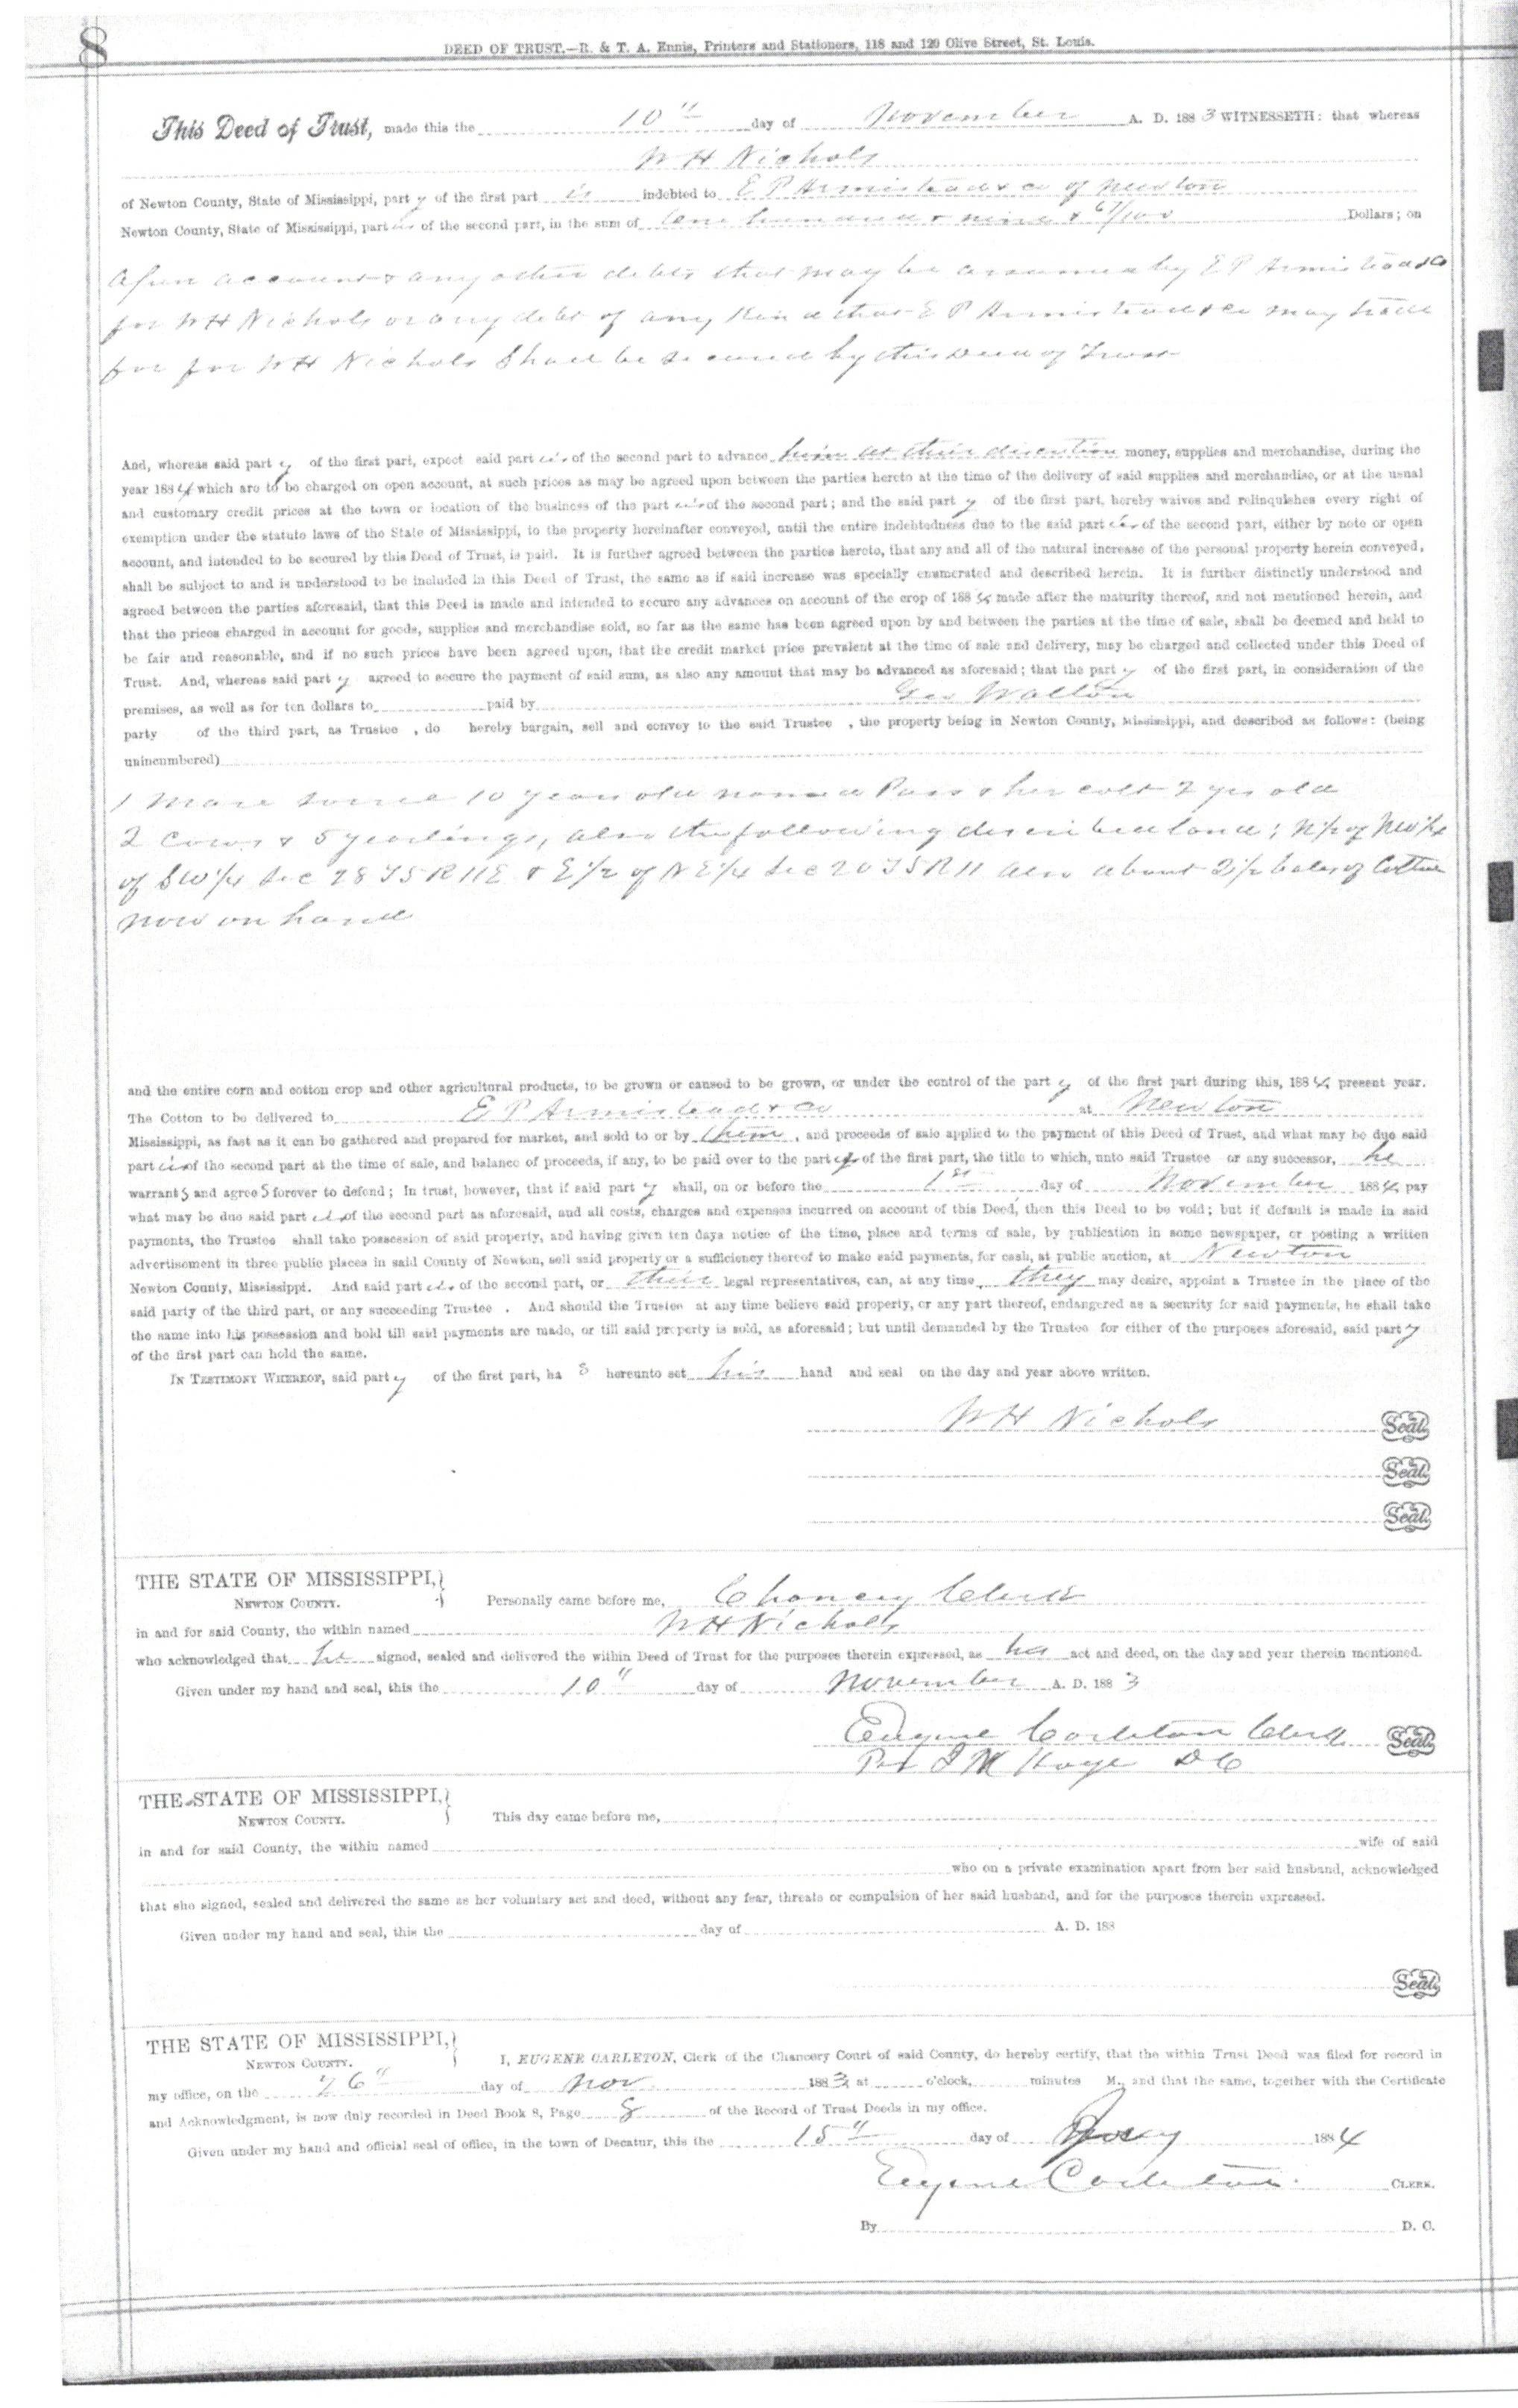 8
DEED OF TRUST.—R. & T. A. Ennis, Printers and Stationers, 118 and 120 Olive Street, St. Louis.
This Deed of Trust, made this the 10" day of November A. D. 1883 WITNESSETH: that whereas
W H Nichols
of Newton County, State of Mississippi, party of the first part is indebted to E P Armistead & co of Newton
Newton County, State of Mississippi, parties of the second part, in the sum of One hundred & nine & 67/100 Dollars; on
Open account & any other debts that may be assumed by E P Armistead & Co
for W H Nichols or any debt of any Kind that E P Armistead & Co may trade
for for W H Nichols Shall be secured by this Deed of Trust
And, whereas said party of the first part, expect said parties of the second part to advance him at their discretion money, supplies and merchandise, during the
year 1884 which are to be charged on open account, at such prices as may be agreed upon between the parties hereto at the time of the delivery of said supplies and merchandise, or at the usual
and customary credit prices at the town or location of the business of the parties of the second part; and the said party of the first part, hereby waives and relinquishes every right of
exemption under the statute laws of the State of Mississippi, to the property hereinafter conveyed, until the entire indebtedness due to the said parties of the second part, either by note or open
account, and intended to be secured by this Deed of Trust, is paid. It is further agreed between the parties hereto, that any and all of the natural increase of the personal property herein conveyed,
shall be subject to and is understood to be included in this Deed of Trust, the same as if said increase was specially enumerated and described herein. It is further distinctly understood and
agreed between the parties aforesaid, that this Deed is made and intended to secure any advances on account of the crop of 1884 made after the maturity thereof, and not mentioned herein, and
that the prices charged in account for goods, supplies and merchandise sold, so far as the same has been agreed upon by and between the parties at the time of sale, shall be deemed and held to
be fair and reasonable, and if no such prices have been agreed upon, that the credit market price prevalent at the time of sale and delivery, may be charged and collected under this Deed of
Trust. And, whereas said party agreed to secure the payment of said sum, as also any amount that may be advanced as aforesaid; that the party of the first part, in consideration of the
premises, as well as for ten dollars to paid by Geo Walton
party of the third part, as Trustee , do hereby bargain, sell and convey to the said Trustee , the property being in Newton County, Mississippi, and described as follows: (being
unincumbered)
1 Mare some 10 years old named Pass & her colt 2 yrs old
2 Cows & 5 yearlings, also the following described land; N½ of NW¼
of SW¼ Sec 28 T5 R11E & E½ of NE¼ Sec 20 T5 R11 also about 2½ bales of Cotton
now on hand
and the entire corn and cotton crop and other agricultural products, to be grown or caused to be grown, or under the control of the party of the first part during this, 1884 present year.
The Cotton to be delivered to E P Armistead & co at Newton
Mississippi, as fast as it can be gathered and prepared for market, and sold to or by them, and proceeds of sale applied to the payment of this Deed of Trust, and what may be due said
parties of the second part at the time of sale, and balance of proceeds, if any, to be paid over to the party of the first part, the title to which, unto said Trustee or any successor, he
warrants and agrees forever to defend; In trust, however, that if said party shall, on or before the 1st day of November 1884 pay
what may be due said parties of the second part as aforesaid, and all costs, charges and expenses incurred on account of this Deed, then this Deed to be void; but if default is made in said
payments, the Trustee shall take possession of said property, and having given ten days notice of the time, place and terms of sale, by publication in some newspaper, or posting a written
advertisement in three public places in said County of Newton, sell said property or a sufficiency thereof to make said payments, for cash, at public auction, at Newton
Newton County, Mississippi. And said parties of the second part, or their legal representatives, can, at any time they may desire, appoint a Trustee in the place of the
said party of the third part, or any succeeding Trustee . And should the Trustee at any time believe said property, or any part thereof, endangered as a security for said payments, he shall take
the same into his possession and hold till said payments are made, or till said property is sold, as aforesaid; but until demanded by the Trustee for either of the purposes aforesaid, said party
of the first part can hold the same.
IN TESTIMONY WHEREOF, said party of the first part, has hereunto set his hand and seal on the day and year above written.
W H Nichols Seal
Seal
Seal
THE STATE OF MISSISSIPPI,
NEWTON COUNTY. Personally came before me, Chancery Clerk
in and for said County, the within named W H Nichols
who acknowledged that he signed, sealed and delivered the within Deed of Trust for the purposes therein expressed, as his act and deed, on the day and year therein mentioned.
Given under my hand and seal, this the 10" day of November A. D. 1883
Eugene Carleton Clerk Seal
Per J M Kaye D C
THE STATE OF MISSISSIPPI,
NEWTON COUNTY. This day came before me,
in and for said County, the within named wife of said
who on a private examination apart from her said husband, acknowledged
that she signed, sealed and delivered the same as her voluntary act and deed, without any fear, threats or compulsion of her said husband, and for the purposes therein expressed.
Given under my hand and seal, this the day of A. D. 188
Seal
THE STATE OF MISSISSIPPI,
NEWTON COUNTY. I, EUGENE CARLETON, Clerk of the Chancery Court of said County, do hereby certify, that the within Trust Deed was filed for record in
my office, on the 26" day of Nov 1883 at o'clock, minutes M., and that the same, together with the Certificate
and Acknowledgment, is now duly recorded in Deed Book 8, Page 8 of the Record of Trust Deeds in my office.
Given under my hand and official seal of office, in the town of Decatur, this the 15" day of 1884
Eugene Carleton CLERK.
By D. C.